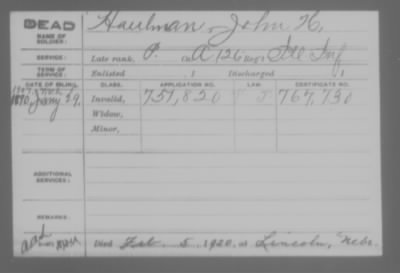 DEAD Haulman, John H.
NAME OF SOLDIER:
SERVICE: Late rank, P. Co. A, 126 Reg't Ill. Inf
TERM OF SERVICE: Enlisted , 1 Discharged , 1
DATE OF FILING. CLASS. APPLICATION NO. LAW. CERTIFICATE NO.
1890, Jany 29, Invalid, 751,820 767,730
Widow,
Minor,
ADDITIONAL SERVICES:
REMARKS:
Died Feb. 5, 1920, at Lincoln, Nebr.